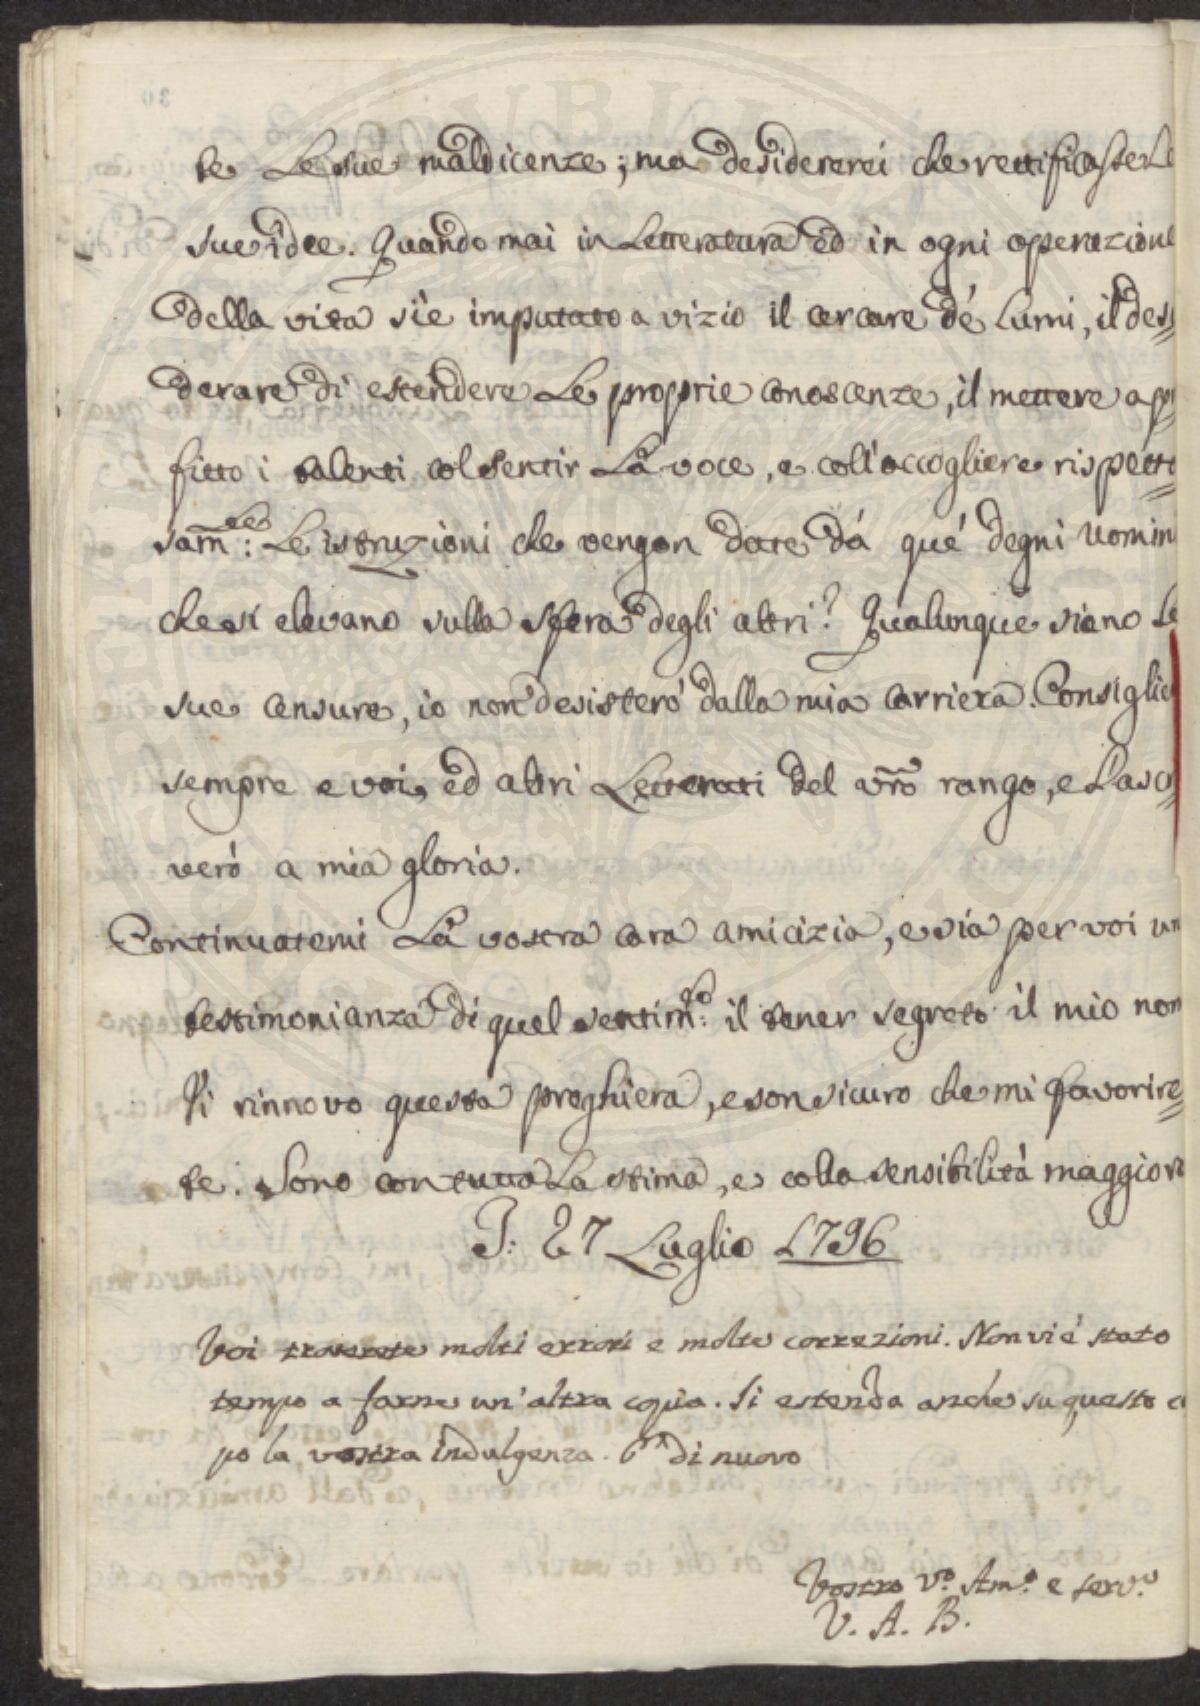 te Le sue maldicenze; ma desidererei che rettificaste Le
sue idee. Quando mai in Letteratura ed in ogni operazione
della vita s'è imputato a vizio il cercare de' Lumi, il desi=
derare di estendere Le proprie conoscenze, il mettere a pro
fitto i talenti col sentir La voce, e coll'accogliere rispetto=
sam̃:te Le istruzioni che vengon date da què degni Uomin
che si elevano sulla sfera degli altri? Qualunque siano Le
sue censure, io non desisterò dalla mia carriera. Consiglie
sempre e voi, ed altri Letterati del vr̃o rango, e L'ascri
verò a mia gloria.
Continuatemi La vostra cara amicizia, e sia per voi un
testimonianza di quel sentim:to il tener segreto il mio nom
Vi rinnovo questa preghiera, e son sicuro che mi favorire=
te. Sono con tutta La stima, e colla sensibilità maggiore
P: 27 Luglio 1796
Voi troverete molti errori e molte correzioni. Non vi è stato
tempo a farne un'altra copia. Si estenda anche su questo ca
po la vostra indulgenza. di nuovo
Vostro V.o Am.o e serv.o
V. A. B.